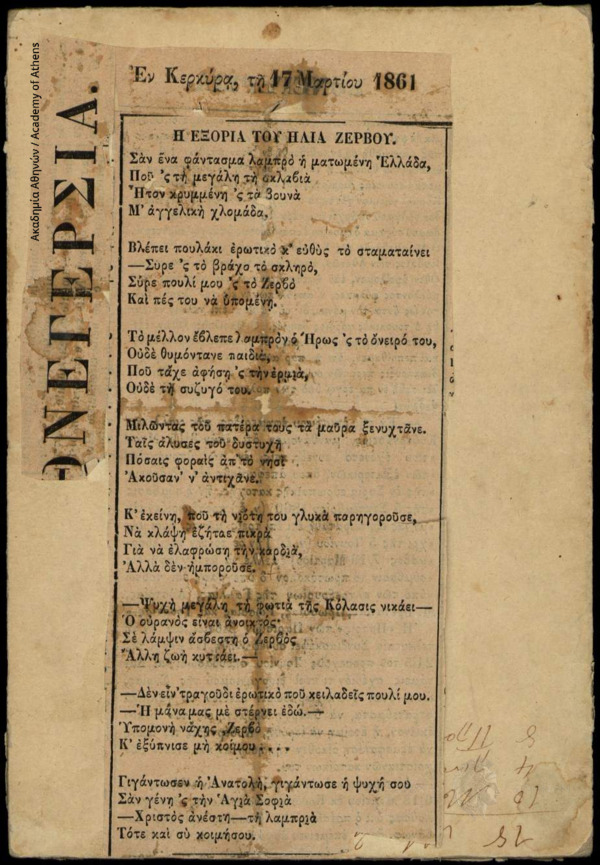 Ἐν Κερκύρᾳ, τῇ 17 Μαρτίου 1861
Ἡ ΕΞΟΡΙΑ ΤΟΥ ΗΛΙΑ ΖΕΡΒΟΥ.
Σὰν ἕνα φάντασμα λαμπρὸ ἡ ματωμένη Ἑλλάδα,
Ποῦ ’ς τὴ μεγάλη τὴ σκλαβιὰ
Ἦτον κρυμμένη ’ς τὰ βουνὰ
Μ’ ἀγγελικὴ χλομάδα.
Βλέπει πουλάκι ἐρωτικὸ κ’ εὐθὺς τὸ σταματαίνει
—Σῦρε ’ς τὸ βράχο τὸ σκληρὸ,
Σῦρε πουλί μου ’ς τὸ Ζερβὸ
Καὶ πές του νὰ ὑπομένῃ.
Τὸ μέλλον ἔβλεπε λαμπρὸν ὁ Ἥρως ’ς τὸ ὄνειρό του,
Οὐδὲ θυμόντανε παιδιὰ,
Ποῦ τἄχε ἀφήσῃ ’ς τὴν ἐρμιὰ,
Οὐδὲ τὴ συζυγό του.
Μιλῶντας τοῦ πατέρα τους τὰ μαῦρα ξενυχτᾶνε.
Ταῖς ἅλυσες τοῦ δυστυχῆ
Πόσαις φοραῖς ἀπ’ τὸ νησὶ
Ἀκοῦσαν’ ν’ ἀντιχᾶνε.
Κ’ ἐκείνη, ποῦ τὴ νιότη του γλυκὰ παρηγοροῦσε,
Νὰ κλάψῃ ἐζήταε πικρὰ
Γιὰ νὰ ἐλαφρώσῃ τὴν καρδιὰ,
Ἀλλὰ δὲν ἠμποροῦσε.
—Ψυχὴ μεγάλη τὴ φωτιὰ τῆς Κόλασις νικάει—
Ὁ οὐρανὸς εἶναι ἀνοικτὸς
Σὲ λάμψιν ἄσβεστη ὁ Ζερβὸς
Ἄλλη ζωὴ κυττάει.—
—Δὲν εἶν’ τραγοῦδι ἐρωτικὸ ποῦ κειλαδεῖς πουλί μου.
—Ἡ μάνα μας μὲ στέρνει ἐδῶ.—
Ὑπομονὴ νάχῃς Ζερβὸ
Κ’ ἐξύπνισε μὴ κοίμου....
Γιγάντωσεν ἡ Ἀνατολὴ, γιγάντωσε ἡ ψυχή σου
Σὰν γένῃ ’ς τὴν Ἁγιὰ Σοφιὰ
—Χριστὸς ἀνέστη—τὴ λαμπριὰ
Τότε καὶ σὺ κοιμήσου.
ΝΕΓΕΡΣΙΑ.
Ακαδημία Αθηνών / Academy of Athens